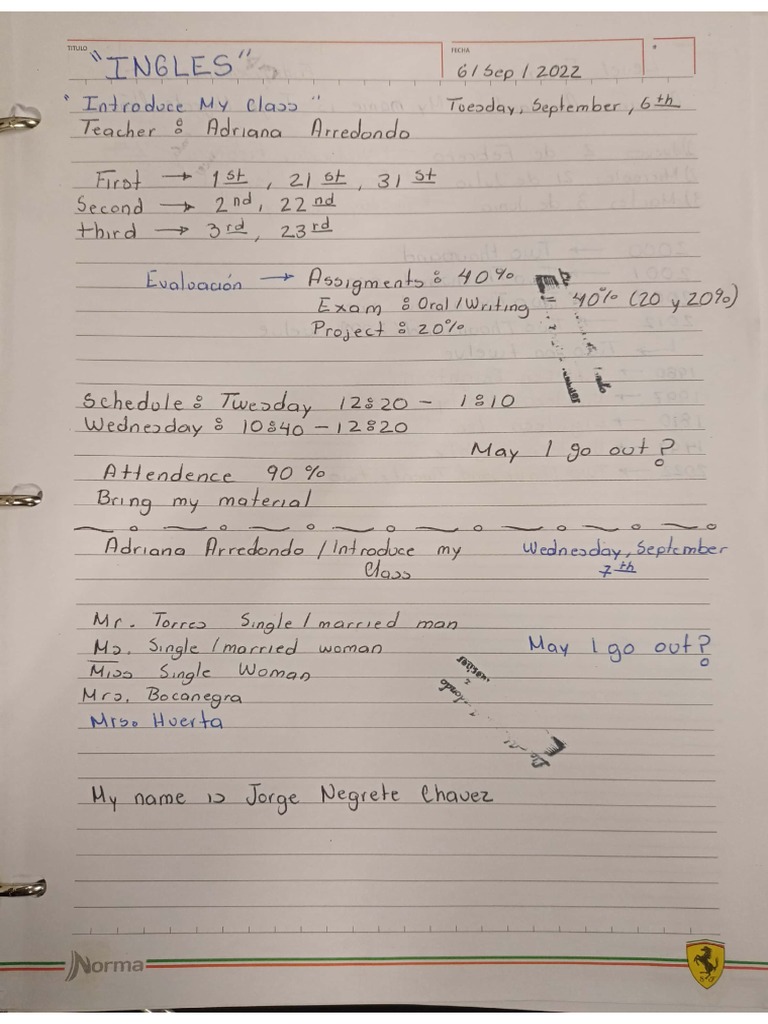 TITULO
"INGLES"
FECHA
6/Sep/2022
"Introduce My Class"
Tuesday, September, 6th
Teacher: Adriana Arredondo
First → 1st, 21st, 31st
Second → 2nd, 22nd
third → 3rd, 23rd
Evaluación → Assigments: 40%
Exam: Oral/Writing = 40% (20 y 20%)
Project: 20%
Schedule: Tuesday 12:20 - 1:10
Wednesday: 10:40 - 12:20
May I go out?
Attendence 90%
Bring my material
Adriana Arredondo / Introduce my Class
Wednesday, September
7th
Mr. Torres Single/married man
Ms. Single/married woman
May I go out?
Miss Single Woman
Mrs. Bocanegra
Mrs. Huerta
My name is Jorge Negrete Chavez
Norma